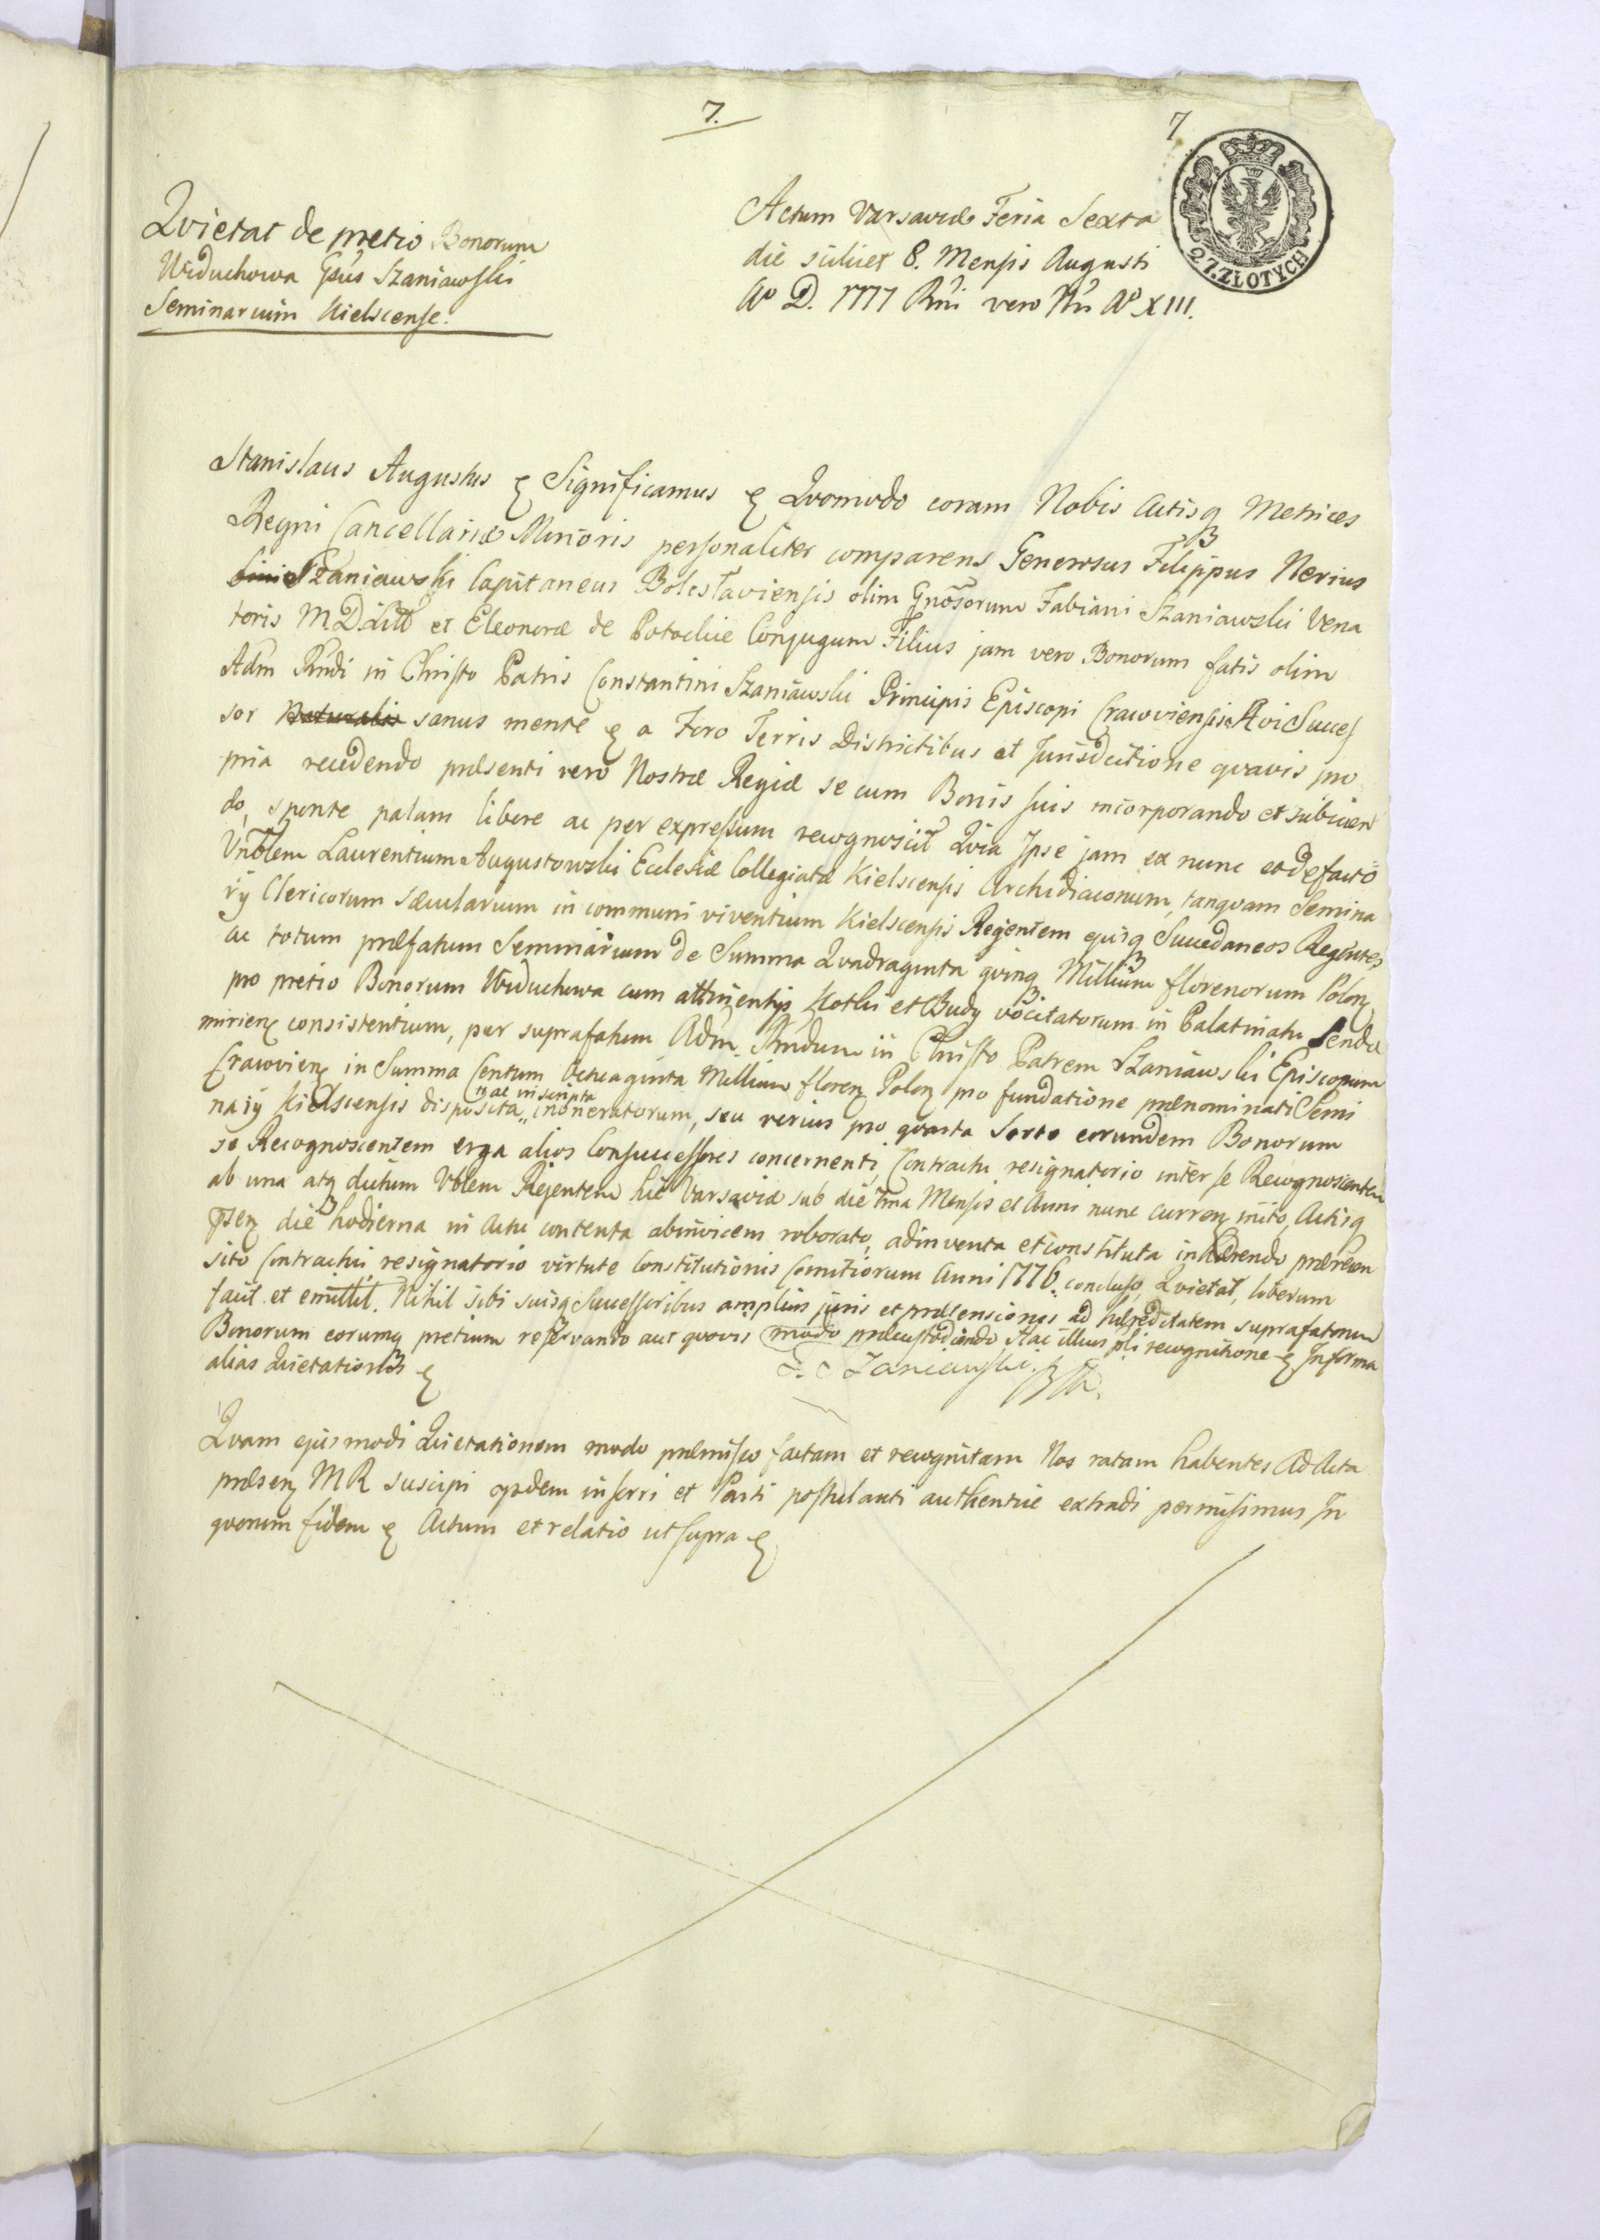 7.
7
2. ZŁOTYCH
Qvietat de pretio Bonorum
Widuchowa Gsus Szaniawski
Seminarium Kielscense.
Actum Varsaviæ Feria Sexta
die scilicet 8. Mensis Augusti
Aº D. 1777 Rni vero Nri Aº XIII.
Stanislaus Augustus Significamus Qvomodo coram Nobis Actisq Metrices
Regni Cancellariæ Minoris personaliter comparens Generosus Filippus Nerius
Szaniawski Capitaneus Bolestaviensis olim Gnosorum Fabiani Szaniawski Vena
toris MDLitt et Eleonoræ de Potockie Conjugum Filius jam vero Bonorum fatis olim
Adm Rndi in Christo Patris Constantini Szaniawski Principis Episcopi Cracoviensis Avi Succes
sor Naturalis sanus mente a Foro Terris Districtibus et Jurisdictione qvavis pro
pria recedendo præsenti vero Nostræ Regiæ se cum Bonis suis incorporando et subicien
do, sponte palam libere ac per expressum recognoscit Qvia Ipse jam ex nunc et de facto
Vnblem Laurentium Augustowski Eclesiæ Collegiatæ Kielscensis Archidiaconum, tanqvam Semina
rij Clericorum sæcularium in communi viventium Kielscensis Regentem ejusq Succedaneos Regentes,
ac totum præfatum Seminarium de Summa Qvadraginta qvinq Millium florenorum Polon
pro pretio Bonorum Widuchowa cum attinentijs Kotki et Budy vocitatorum in Palatinatu Sendo
mirien consistentium, per suprafatum Adm. Rndum in Christo Patrem Szaniawski Episcopum
Cracovien in Summa Centum Octuaginta Millium floren Polon pro fundatione prænominati Semi
narij Kielscensis disposita inscripta inoneratorum, seu verius pro qvarta Sorte eorundem Bonorum
se Recognoscentem erga alios Consuccessores concernenti, Contractu resignatorio inter se Recognoscentem
ab una atq dictum Vblem Rejentem hic Varsaviæ sub die 7ma Mensis et Anni nunc curren inito, Actisq
psen die hodierna in Actu contenta abinvicem roborato, adinventa et constituta inhærendo præreen
sito Contractui resignatorio virtute Constitutionis Comitiorum Anni 1776 concluso, Qvietat, liberum
facit et emittit. Nihil sibi suisq Successoribus amplius juris et prætensiones ad hæreditatem suprafatorum
Bonorum eorumq pretium reservando aut qvovis modo præcustodiendo, Hac illius pli recognitione In forma
alias Qvietationis
F. Szaniawski
Qvam ejusmodi Qvietationem modo præmisso factam et recognitam Nos ratam habentes Ad Acta
præsen MR suscipi eisdem inseri et Parti postulanti authentice extradi permisimus In
qvorum fidem Actum et relatio ut supra